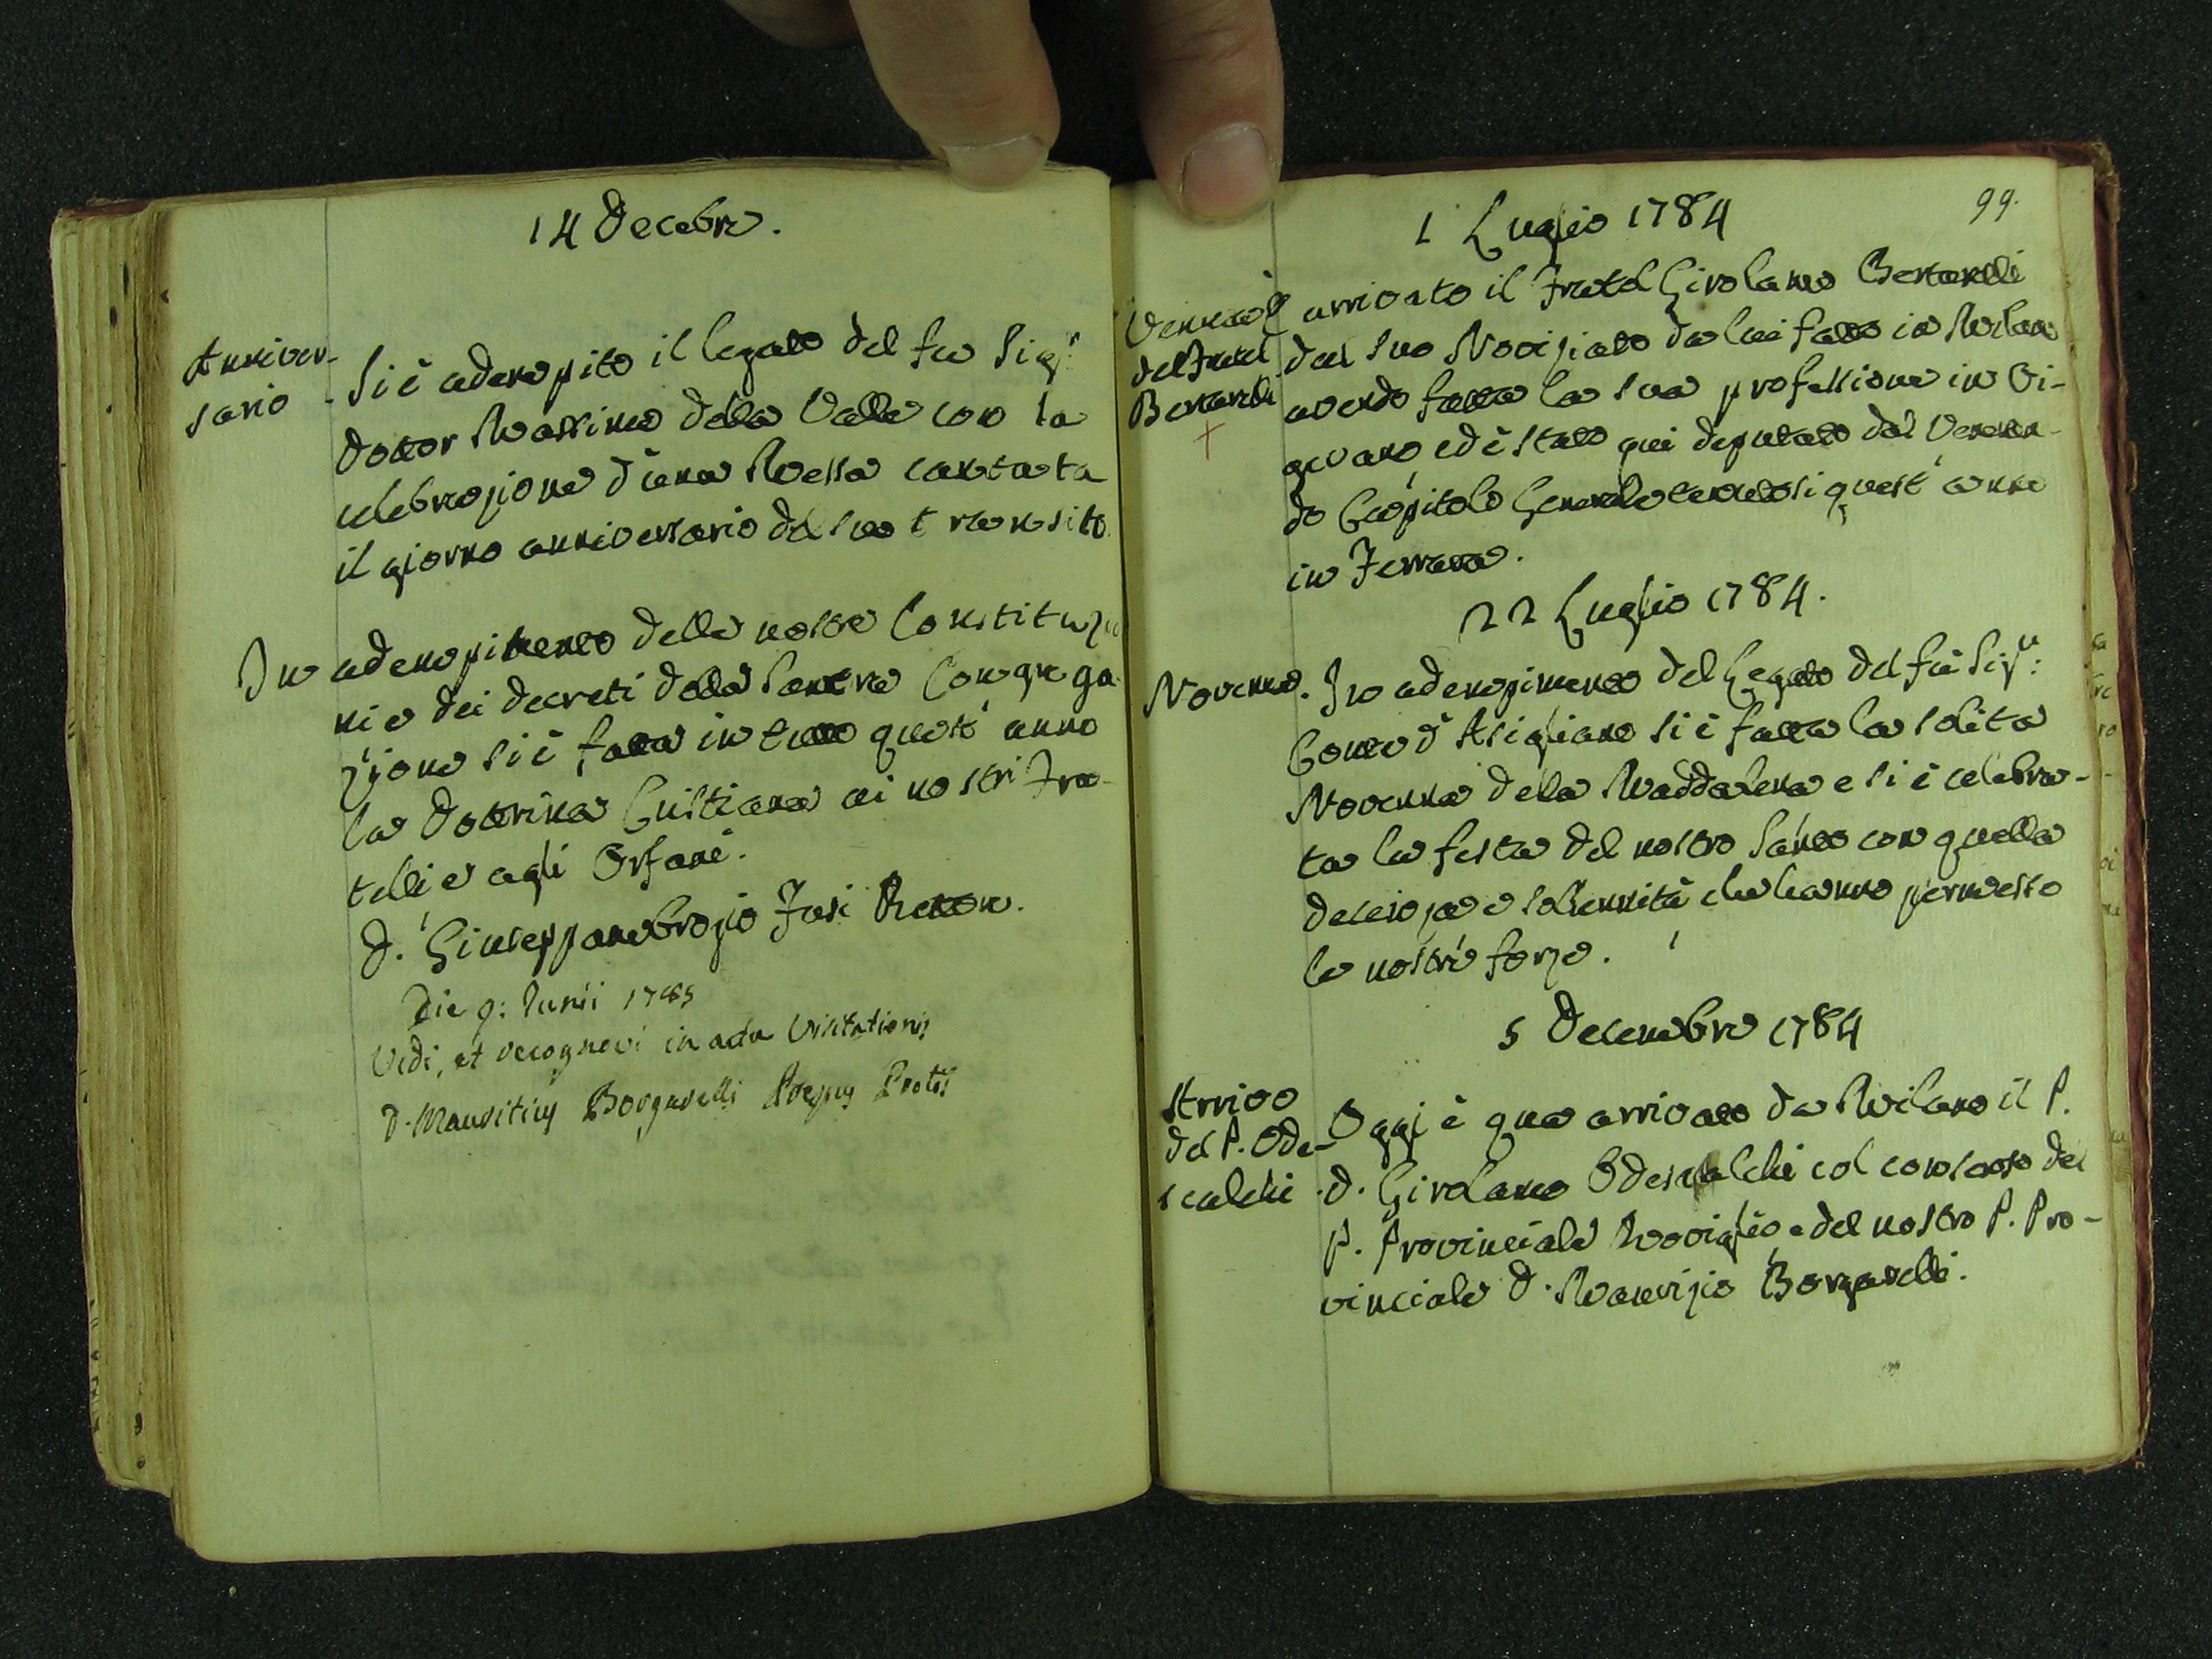 14 Decebre.
Anniver-
sario
Si è adempito il legato del fu Sigr
Dottor Massimo della Valle con la
celebrazione d'una Messa cantata
il giorno anniversario del suo transito.
In adempimento delle nostre Constituzio
ni e dei decreti della Santa Congrega
zione si è fatta in tutto quest' anno
la Dottrina Cristiana ai nostri Fra-
telli e agli Orfani.
D. Giuseppambrogio Fusi Rettore.
Die 9: Iunii 1785
Vidi, et recognovi in actu Visitationis
D. Mauritius Borgarelli Præpus Prolis
99.
1 Luglio 1784
Venuta
del Fratel
Bertarelli
È arrivato il Fratel Girolamo Bertarelli
dal suo Noviziato da lui fatto in Milano
avendo fatta la sua professione in Vi-
gevano ed è stato qui deputato dal Veneran-
do Capitolo Generale tenutosi quest' anno
in Ferrara.
22 Luglio 1784.
Novenna.
In adempimento del Legato del fù Sigr:
Conte d'Asigliano si è fatta la solita
Novenna della Maddalena e si è celebra-
ta la festa del nostro Santo con quella
decenza e solennità che hanno permesso
le nostre forze.
5 Decembre 1784
Arrivo
del P. Ode-
scalchi
Oggi è qua arrivato da Milano il P.
D. Girolamo Odescalchi col consenso del
P. Provinciale Roviglio e del nostro P. Pro-
vinciale D. Maurizio Borgarelli.